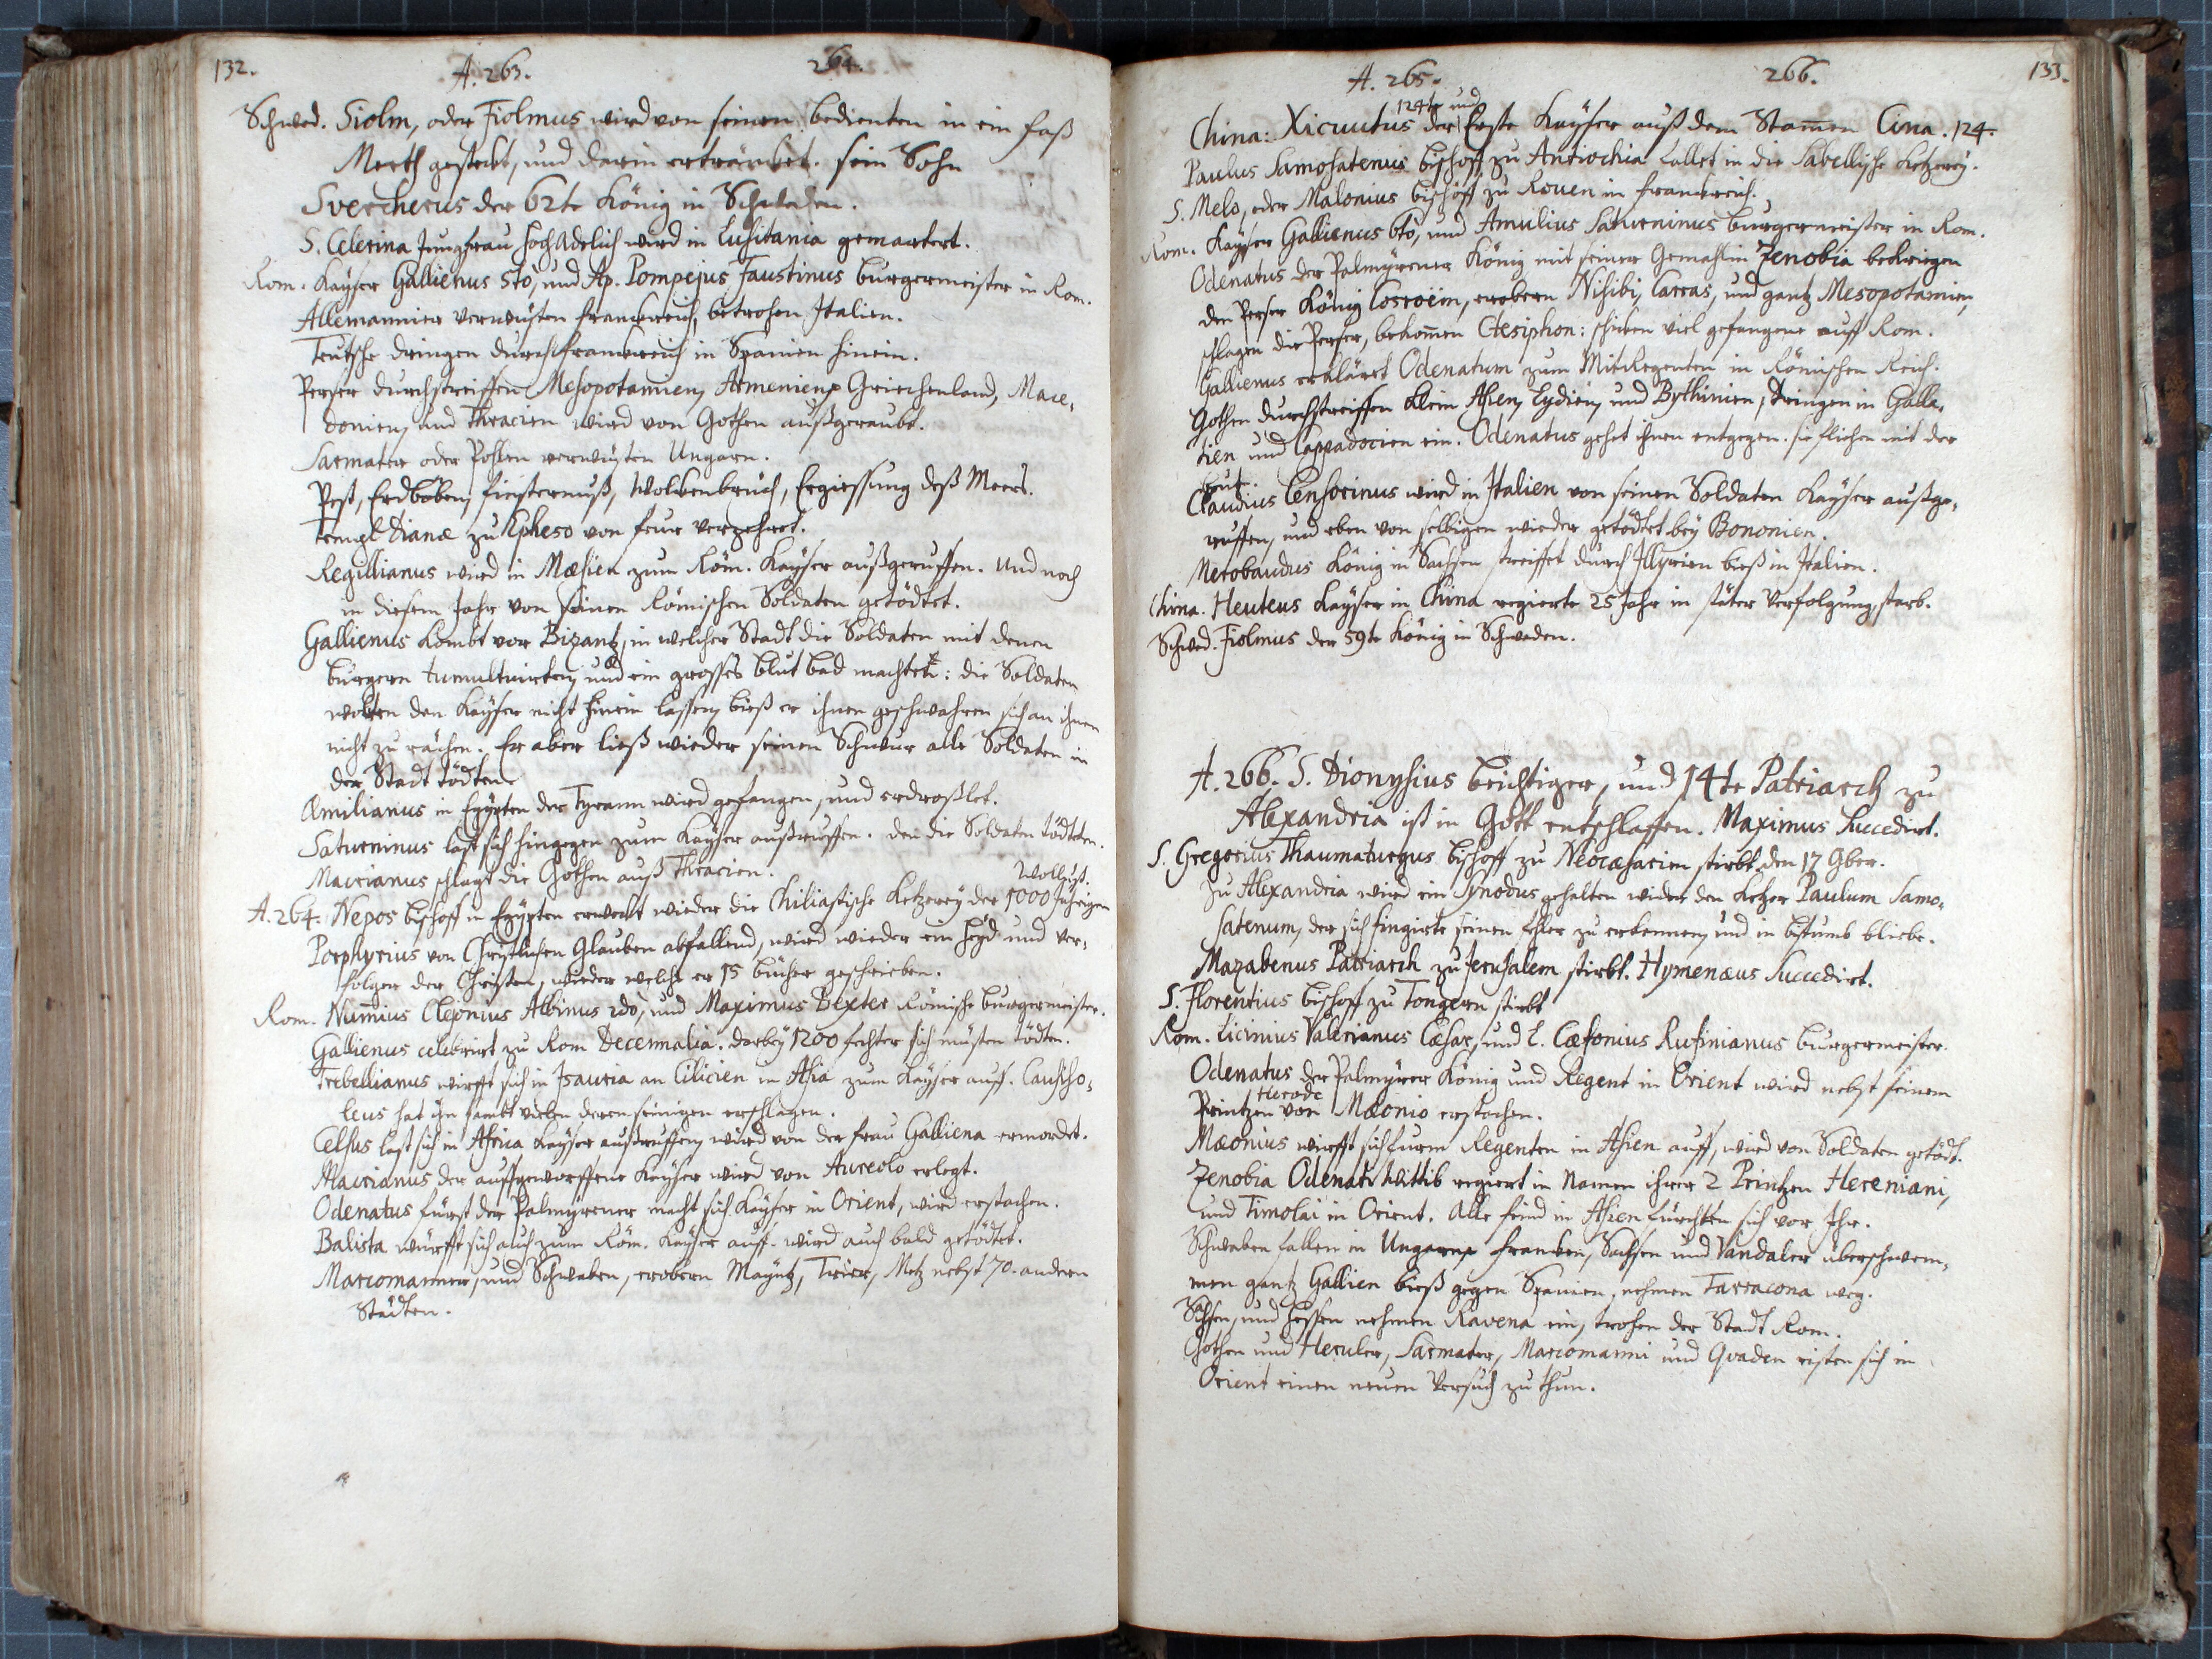 132. A. 263. 264.
Schwed. Siolm, oder Fiolmus wird von seinen bedienten in ein faß
Meeth gestekt, und darin ertränket. sein Sohn
Svercherus der 62te König in Schweden.
S. Celerina Jungfrau hochadelich wird in Lusitania gemartert.
Rom. Kayser Gallienus 5to, und Ap. Pompejus Faustinus burgermeister in Rom.
Allemannier verwüsten frankreich, betrohen Italien.
Teutsche dringen durch frankreich in Spanien hinein.
Perser durchstreiffen Mesopotamien, Armenien, Griechenland, Mace,
donien, und Thracien wird von Gothen außgeraubt.
Sarmater oder Pohlen verwüsten Ungarn.
Pest, Erdboben, finsternuß, Wolkenbruch, Ergiessung deß Meers.
Templ Dianæ zu Epheso von feur verzehret.
Regillianus wird in Mæsien zum Röm. Kayser außgeruffen. Und noch
in diesem Jahr von seinen Römischen Soldaten getödtet.
Gallienus kombt vor Bizantz, in welcher Stadt die Soldaten mit denen
burgern tumultuirten, und ein grosses blut bad machten: die Soldaten
wolten den Kayser nicht hinein lassen, bieß er ihnen geschwahren sich an ihnen
nicht zu rächen. Er aber ließ wieder seinen Schwur alle Soldaten in
der Stadt tödten.
Æmilianus in Egypten der Tyrann wird gefangen, und erdroßlet.
Saturninus last sich hingegen zum Kayser außruffen. den die Soldaten tödteten.
Macrianus schlagt die Gothen auß Thracien. Wollust.
A. 264. Nepos bischoff in Egypten erwekt wieder die Chiliastische Ketzerey der 1000 Jährigen
Porphyrius von Christlichen Glauben abfallend, wird wieder ein Heyd und ver,
folger der Christen, wieder welche er 15 bücher geschrieben.
Rom. Num̄ius Clejonius Albinus 2do, und Maximus Dexter Römische burgermeister.
Gallienus celebrirt zu Rom Decennalia. darbey 1200 fechter sich müsten tödten.
Trebellianus wirfft sich in Isauria an Cilicien in Asia zum Kayser auf. Causiso,
leus hat ihn sambt vielen deren seinigen erschlagen.
Celsus last sich in Africa Kayser außruffen, wird von der frau Galliena ermordet.
Macrianus der auffgeworffene Kayser wird von Aureolo erlegt.
Odenatus fürst der Palmyrener macht sich Kayser in Orient, wird erstochen.
Balista würfft sich auch zum Röm. Kayser auff. wird auch bald getödtet.
Marcomanner, und Schwaben, erobern Mayntz, Trier, Metz nebst 70. andern
Städten.
A. 265. 266. 133.
124te und
China: Xicuutus der Erste Kayser auß dem Stam̄en Cina. 124.
Paulus Samosatenus bischoff zu Antiochia fallet in die Sabellische Ketzerey.
S. Melo, oder Malonius bischoff zu Rouen in frankreich.
Rom. Kayser Gallienus 6to, und Amulius Saturninus burgermeister in Rom.
Odenatus der Palmyrener König mit seiner Gemahlin Zenobia bekriegen
den Perser König Cosroëm, erobern Nisibi, Carras, und gantz Mesopotamien,
schlagen die Perser, bekom̄en Ctesiphon: schiken viel gefangene auff Rom.
Gallienus erkläret Odenatum zum MitRegenten in Römischen Reich.
Gothen durchstreiffen klein Asien, Lydien, und Bythinien, dringen in Galla,
tien und Cappadocien ein. Odenatus gehet ihnen entgegen. sie fliehen mit der
beut.
Claudius Censorinus wird in Italien von seinen Soldaten Kayser außge,
ruffen, und eben von selbigen wieder getödtet bey Bononien.
Merobaudus König in Sachsen streiffet durch Illyrien bieß in Italien.
China. Heuteus Kayser in China regierte 25 Jahr in stäter Verfolgung, starb.
Schwed. Fiolmus der 59te König in Schweden.
A. 266. S. Dionysius beichtiger, und 14te Patriarch zu
Alexandria ist in Gott entschlaffen. Maximus Succedirt.
S. Gregorius Thaumaturgus bischoff zu Neocæsarien stirbt den 17 9ber.
Zu Alexandria wird ein Synodus gehalten wider den Ketzer Paulum Samo,
satenum, der sich fingirte seinen fehler zu erkennen, und in bistumb bliebe.
Mazabenus Patriarch zu Jerusalem stirbt. Hymenæus Succedirt.
S. Florentius bischoff zu Tongern stirbt
Rom. Licinius Valerianus Cæsar, und L. Cæsonius Rufinianus burgermeister.
Odenatus der Palmyrer König und Regent in Orient wird nebst seinem
Herode
Printzen von Mæonio erstochen.
Mæonius wirfft sich zum Regenten in Asien auff, wird von Soldaten getödt.
Zenobia Odenati Wittib regiert in Namen ihrer 2 Printzen Hereniani,
und Timolai in Orient. Alle feind in Asien fürchten sich vor Ihr.
Schwaben fallen in Ungarn, franken, Sachsen und Vandaler überschwem,
men gantz Gallien bieß gegen Spanien, nehmen Tarracona weg.
Sachsen, und Hessen nehmen Ravena ein, trohen der Stadt Rom.
Gothen und Heruler, Sarmater, Marcomanni und Quaden rüsten sich in
Orient einen neuen Versuch zu thun.